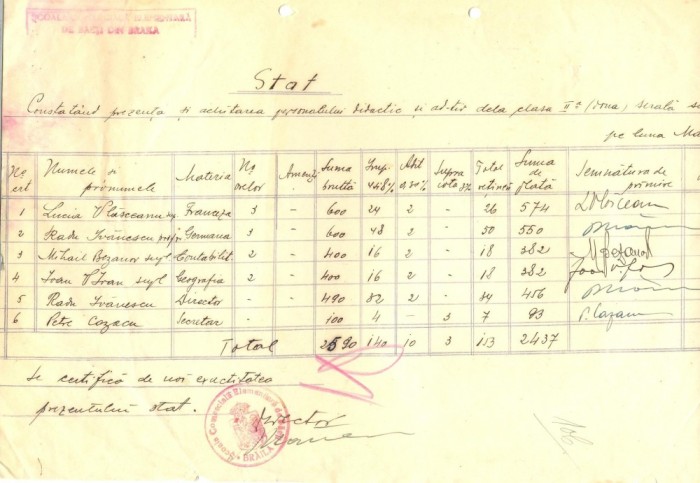 ȘCOALA ELEMENTARĂ
DE BĂEȚI DIN BRAILA
Stat
Constatând prezența și achitarea personalului didactic și ad-tiv dela clasa IIa (doua) serală
pe luna Ma
No crt Numele și pronumele Materia No orelor Amenzi Suma brută Imp. Adit 0,50% Supra cota 3% Total reținut Suma de plată Semnătura de primire
1 Lucia Vlăsceanu Franceza 3 - 600 24 2 - 26 574
2 Radu Ivănescu prof. Germana 3 - 600 48 2 - 50 550
3 Mihail Bezanor supl Contabilit. 2 - 400 16 2 - 18 382
4 Ivan V Ivan supl Geografia 2 - 400 16 2 - 18 382
5 Radu Ivănescu Director - - 490 32 2 - 34 456
6 Petre Cazacu Secretar - - 100 4 - 3 7 93 P. Cazacu
Total 2590 140 10 3 153 2437
Se certifică de noi exactitatea
prezentului stat.
Director
Școala Comercială Elementară de Băeți BRĂILA